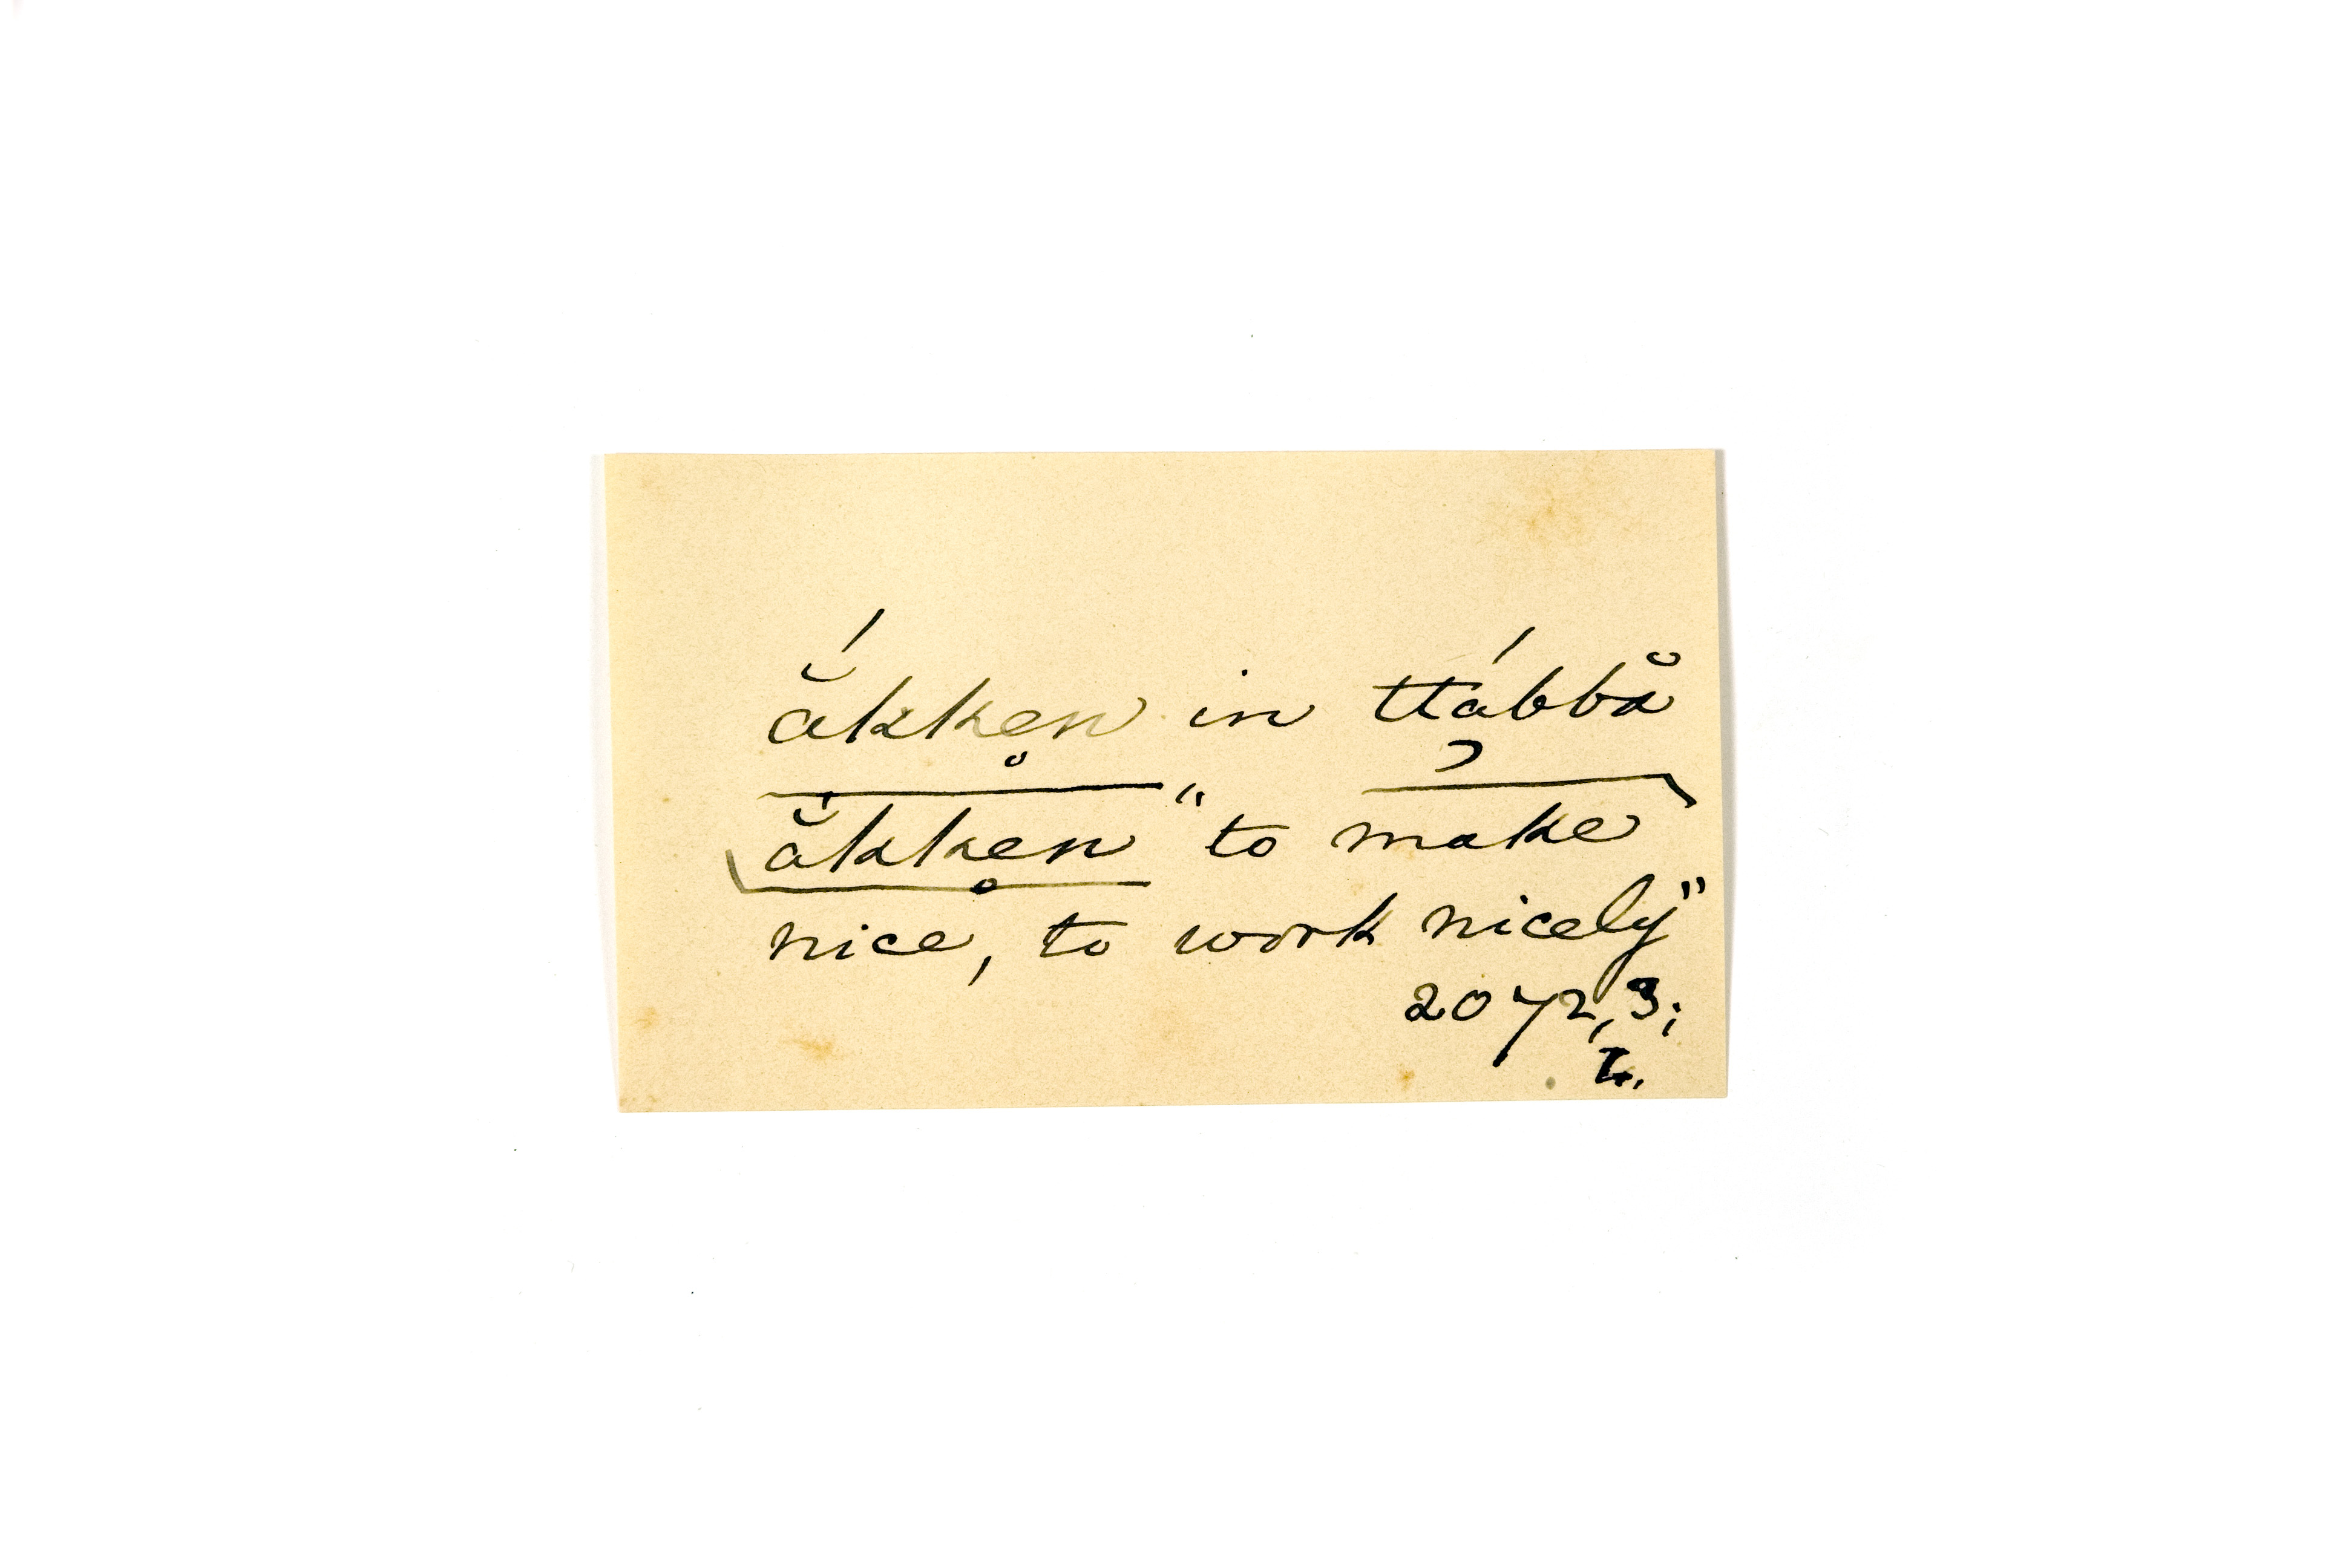 ắkken̥ in ttá̹bbă
ăkken̥ "to make
nice, to work nicely"
2072,3;
L.